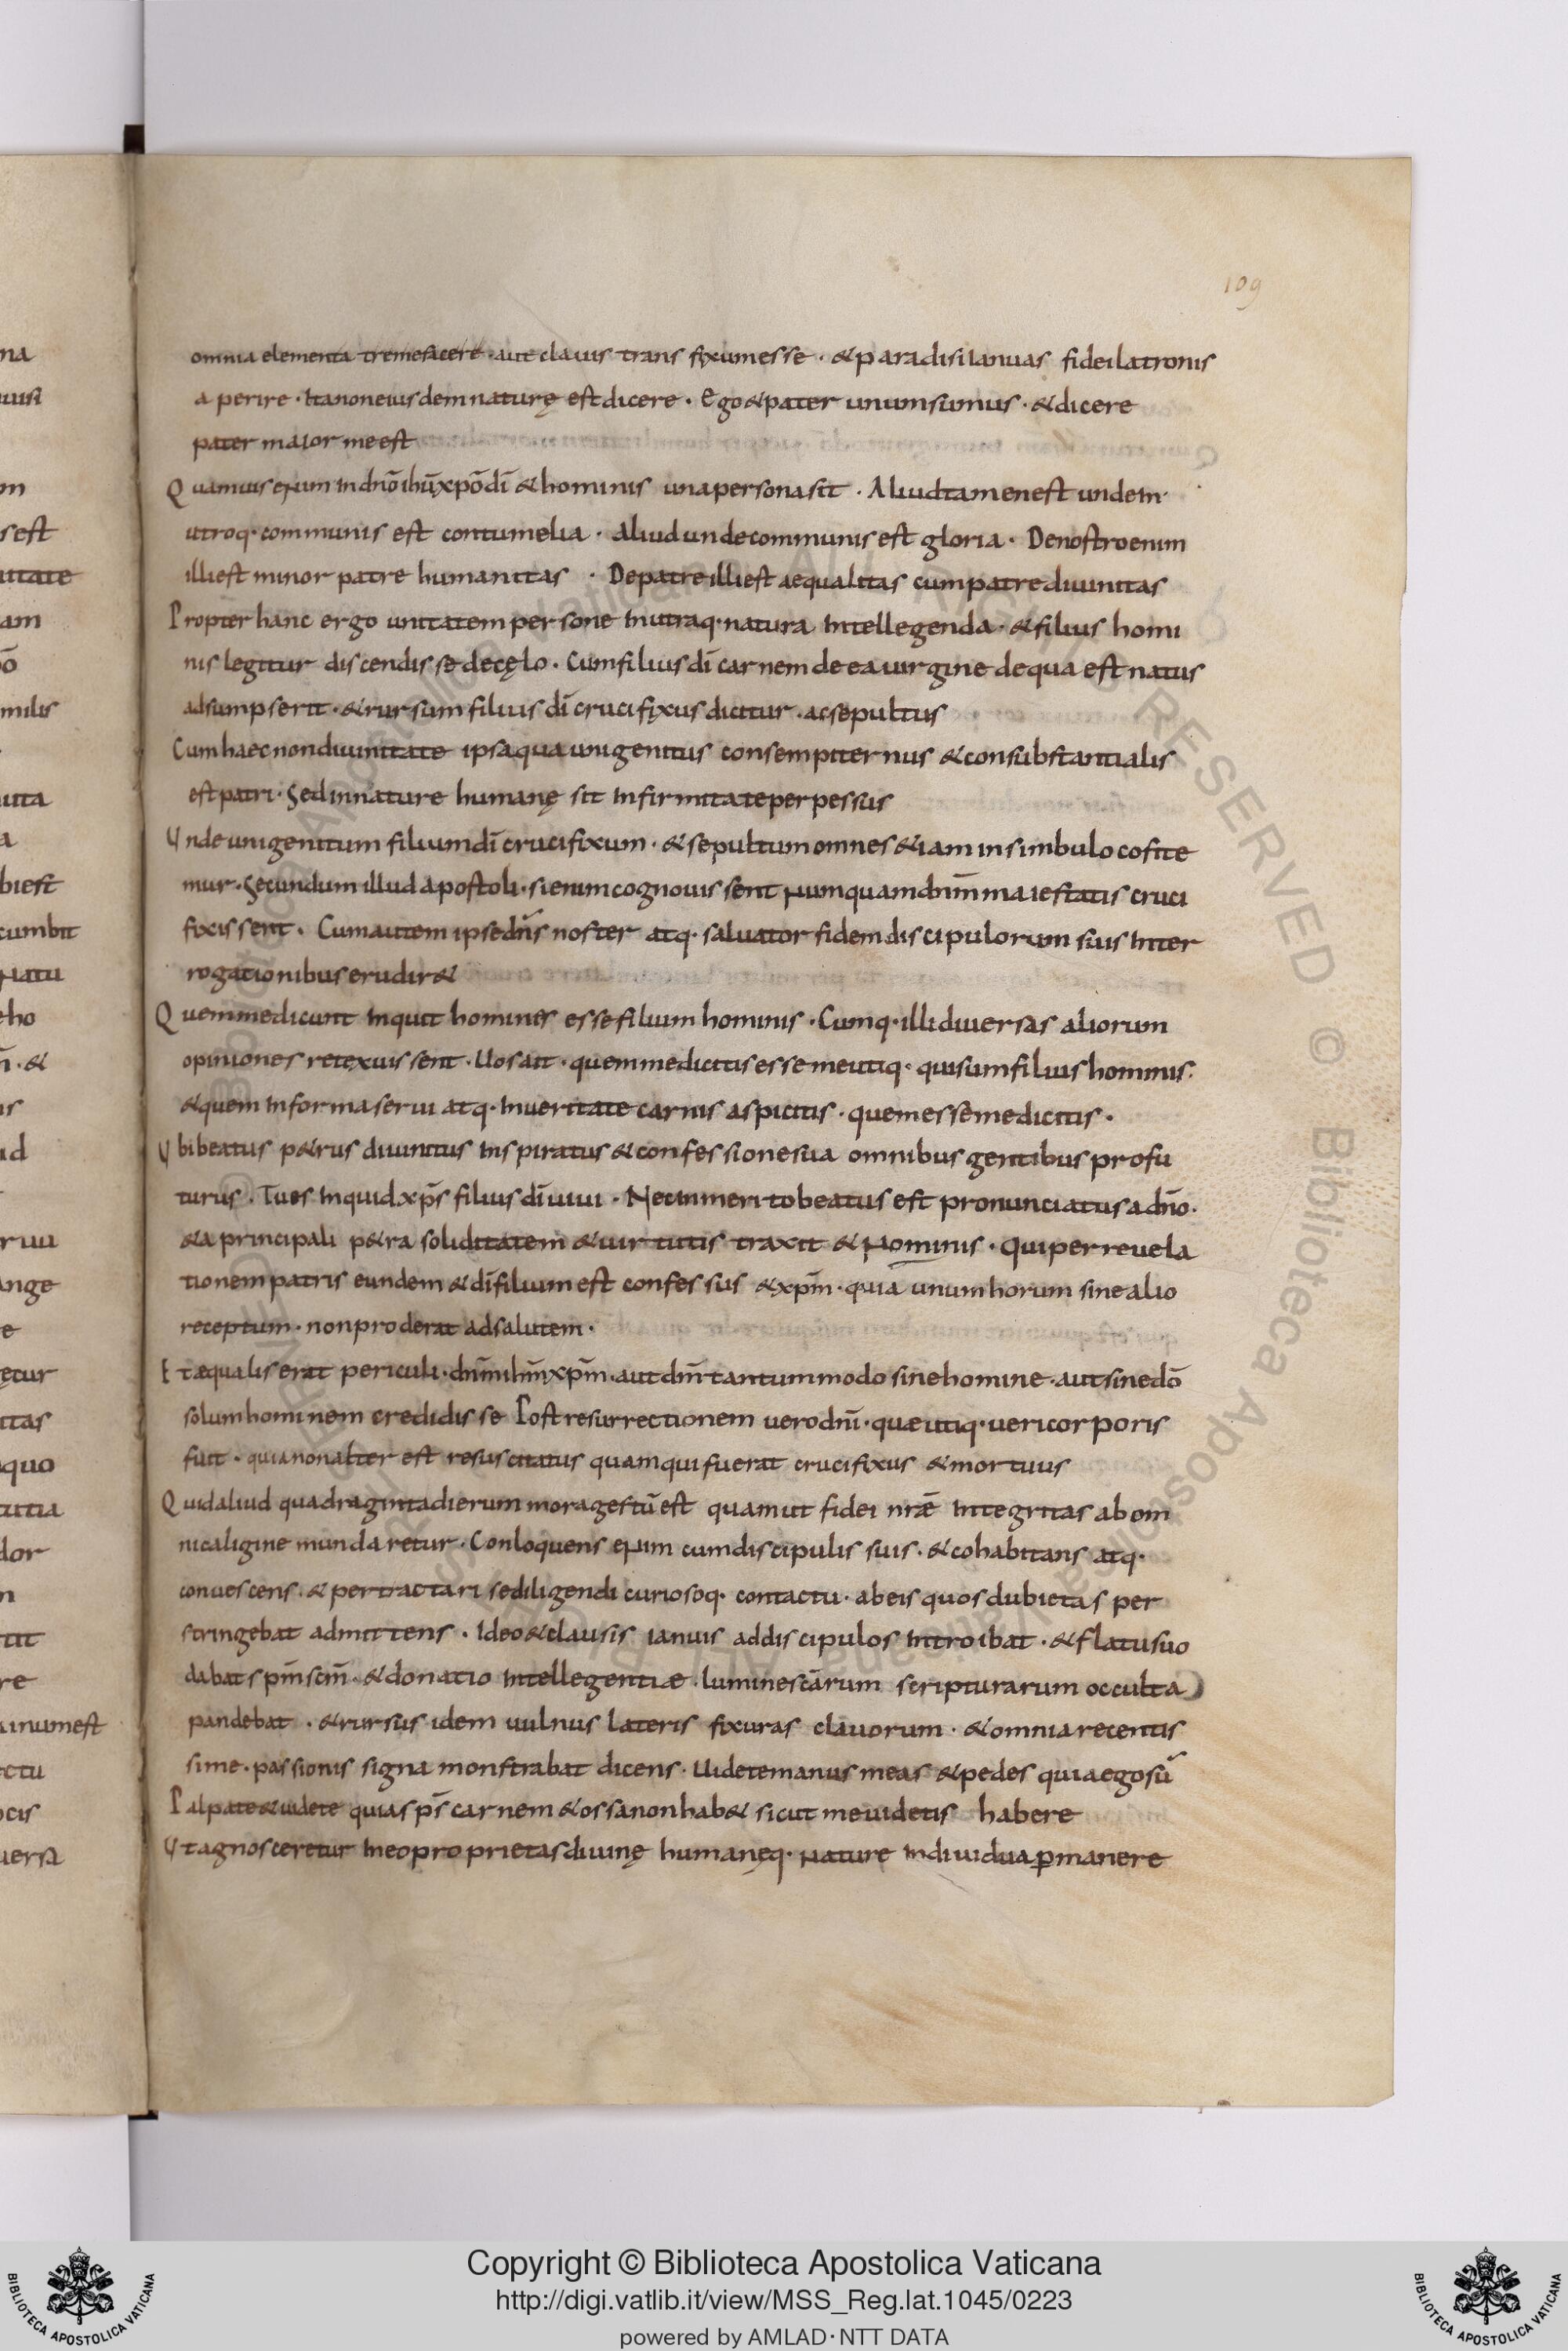 109
omnia elementa tremefacere · aut clauis trans fixum esse · & paradisi ianuas fidei latronis
a perire · Ita non eiusdem naturę est dicere · Ego & pater unum sumus · & dicere
pater maior me est
Quamuis enim in dnō ihū xpō dī & hominis una persona sit · Aliud tamen est unde in
utroq· communis est contumelia · aliud unde communis est gloria · De nostro enim
illi est minor patre humanitas · De patre illi est aequalitas cum patre diuinitas
Propter hanc ergo unitatem persone in utraq· natura intellegenda · & filius homi
nis legitur discendisse de cęlo · Cum filius dī carnem de ea uirgine de qua est natus
adsumpserit · & rursum filius dī crucifixus dicitur · ac sepultus
Cum haec non diuinitate ipsa qua unigenitus consempiternus & consubstantialis
est patri · Sed in nature humanę sit infirmitate perpessus
Unde unigenitum filium dī crucifixum · & sepultum omnes &iam in simbulo cofite
mur · Secundum illud apostoli · si enim cognouissent numquam dnm̄ maiestatis cruci
fixissent · Cum autem ipse dn̄s noster atq· saluator fidem discipulorum suis inter
rogationibus erudir&
Quem me dicunt inquit homines esse filium hominis · Cumq· illi diuersas aliorum
opiniones retexuissent · Uos ait · quem me dicitis esse me utiq· qui sum filius hominis·
& quem in forma serui atq· in ueritate carnis aspicitis · quem esse me dicitis ·
Ubi beatus p&rus diuinitus inspiratus & confessione sua omnibus gentibus profu
turus · Tu es inquid xp̄s filius dī uiui · Nec inmerito beatus est pronunciatus a dnō·
& a principali p&ra soliditatem & uirtutis traxit & nominis · qui per reuela
tionem patris eundem & dī filium est confessus & xpm̄ · quia unum horum sine alio
receptum · non proderat ad salutem ·
Et æqualis erat periculi · dnm̄ ihm̄ xpm̄ · aut dm̄ tantummodo sine homine · aut sine dō
solum hominem credidisse Post resurrectionem uero dnī · quæ utiq· ueri corporis
fuit · quia non alter est resuscitatus quam qui fuerat crucifixus & mortuus
Quid aliud quadraginta dierum mora gestū est quam ut fidei nrǣ integritas ab om
ni caligine mundaretur · Conloquens enim cum discipulis suis · & cohabitans atq·
conuescens · & pertractari se diligendi curiosoq· contactu · ab eis quos dubietas per
stringebat admittens · Ideo & clausis ianuis ad discipulos introibat · & flatu suo
dabat spm̄ scm̄ · & donatio intellegentiæ · lumine scārum scripturarum occulta
pandebat · & rursus idem uulnus lateris fixuras clauorum · & omnia recentis
sime · passionis signa monstrabat dicens · Uidete manus meas & pedes quia ego sū
Palpate & uidete quia sp̄s carnem & ossa non hab& sicut me uidetis habere
Ut agnosceretur in eo proprietas diuinę humanęq· nature indiuidua ꝑmanere
na
uisi
on
s est
itate
am
ō
milis
uita
a
bi est
cumbit
natu
eho
· &
is
id
ruu
ange
e
ętur
itas
quo
utia
dor
n
tit
re
unum est
ctu
ocis
uersa
BIBLIOTECA APOSTOLICA VATICANA
Copyright © Biblioteca Apostolica Vaticana
http://digi.vatlib.it/view/MSS_Reg.lat.1045/0223
powered by AMLAD·NTT DATA
BIBLIOTECA APOSTOLICA VATICANA